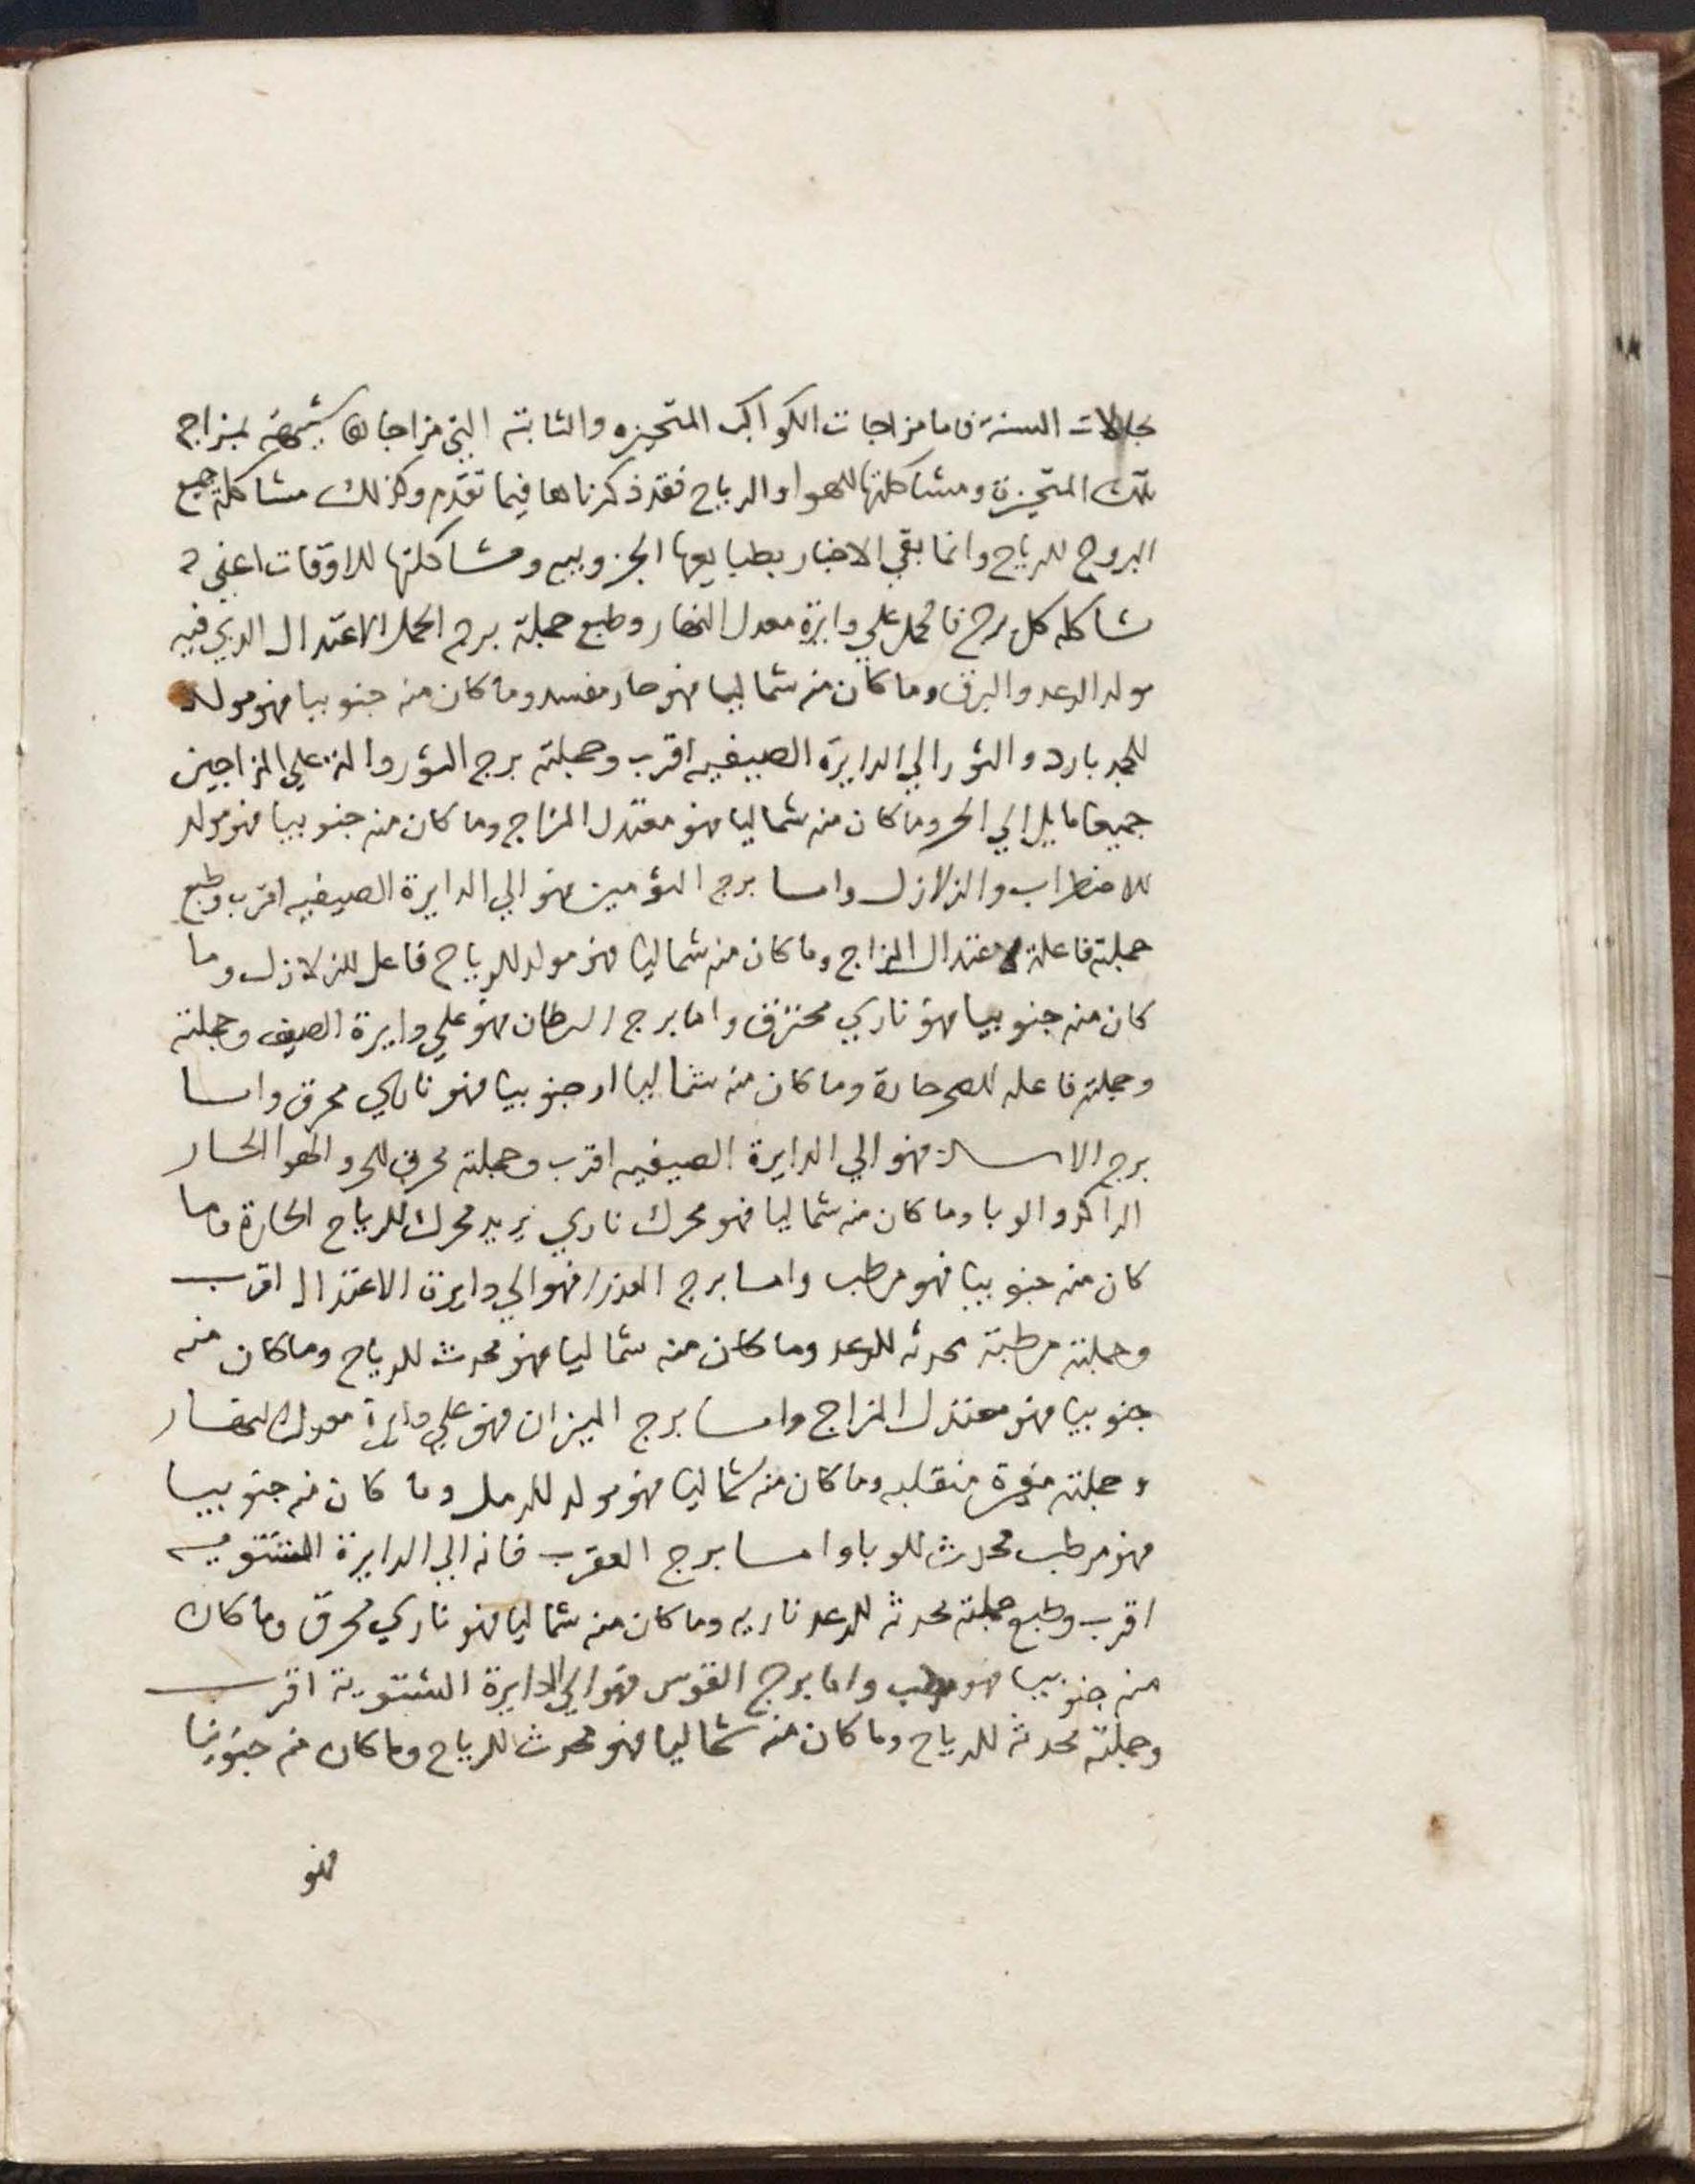 بحالات السنة فاما مزاجات الكواكب المتحيزه والثابته التي مزاجاتها شبيهة بمزاج
تلك المتحيزة ومشاكلتها للهوا والرياح فقد ذكرناها فيما تقدم وكذلك مشاكلة جميع
البروج للرياح وانما بقي الاخبار بطبايعها الجزوييه ومشاكلتها للاوقات اعني
مشاكله كل برج فالحمل علي دايرة معدل النهار وطبع جملة برج الحمل الاعتدال الدي فيه
مولد الرعد والبرق وما كان منه شماليا فهو حار مفسد وما كان منه جنوبيا فهو مولد
للجمد بارد والثور الي الدايرة الصيفيه اقرب وجملته برج الثور علي المزاجين
جميعا مايل الي الحر وما كان منه شماليا فهو معتدل المزاج وما كان منه جنوبيا فهو مولد
للاضطراب والزلازل واما برج التؤمين فهو الي الدايرة الصيفيه اقرب وطبع
جملته فاعلة لاعتدال المزاج وما كان منه شماليا فهو مولد للرياح فاعل للزلازل وما
كان منه جنوبيا فهو ناري محترق واما برج السرطان فهو علي دايرة الصيف وجملته
وجملته فاعله للصحو حارة وما كان منه شماليا او جنوبيا فهو ناري محرق واما
برج الاسد فهو الي الدايرة الصيفيه اقرب وجملته محرق للحر والهوا الحار
الراكد والوبا وما كان منه شماليا فهو محرك ناري يريد محرك للرياح الحارة وما
كان منه جنوبيا فهو مرطب واما برج العذرا فهو الي دايرة الاعتدال اقرب
وجملته مرطبة محدثه للرعد وما كان منه شماليا فهو محدث للرياح وما كان منه
جنوبيا فهو معتدل المزاج واما برج الميزان فهو علي دايرة معدل النهار
وجملته مغيرة منقلبه وما كان منه شماليا فهو مولد للرمل وما كان منه جنوبيا
فهو مرطب محدث للوبا واما برج العقرب فانه الي الدايرة الشتويه
اقرب وطبع جملته محدثه للرعد ناريه وما كان منه شماليا فهو ناري محرق وما كان
منه جنوبيا فهو مرطب واما برج القوس فهو الي الدايرة الشتوية اقرب
وجملته محدثه للرياح وما كان منه شماليا فهو محدث للرياح وما كان منه جنوبيا
فهو